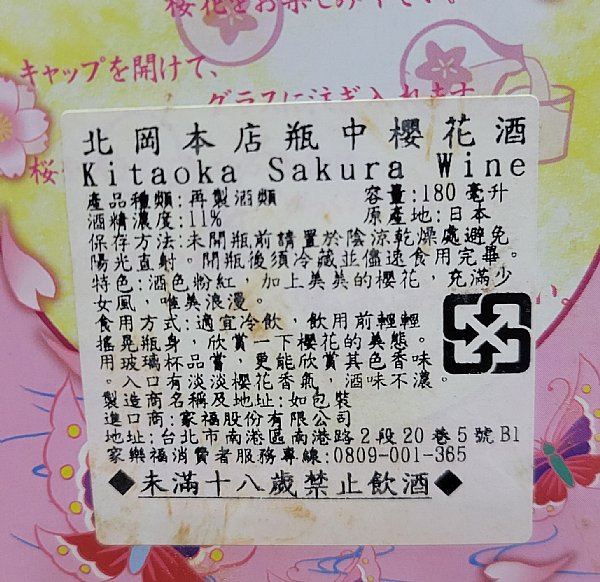 桜花をお楽しみ下さい。
キャップを開けて、
グラスに注ぎ入れます
桜
北岡本店瓶中櫻花酒
Kitaoka Sakura Wine
產品種類:再製酒類 容量:180毫升
酒精濃度:11% 原產地:日本
保存方法:未開瓶前請置於陰涼乾燥處避免
陽光直射。開瓶後須冷藏並儘速食用完畢。
特色:酒色粉紅,加上美美的櫻花,充滿少
女風,唯美浪漫。
食用方式:適宜冷飲,飲用前輕輕
搖晃瓶身,欣賞一下櫻花的美態。
用玻璃杯品嘗,更能欣賞其色香味
。入口有淡淡櫻花香氣,酒味不濃。
製造商名稱及地址:如包裝
進口商:家福股份有限公司
地址:台北市南港區南港路2段20巷5號B1
家樂福消費者服務專線:0809-001-365
◆未滿十八歲禁止飲酒◆